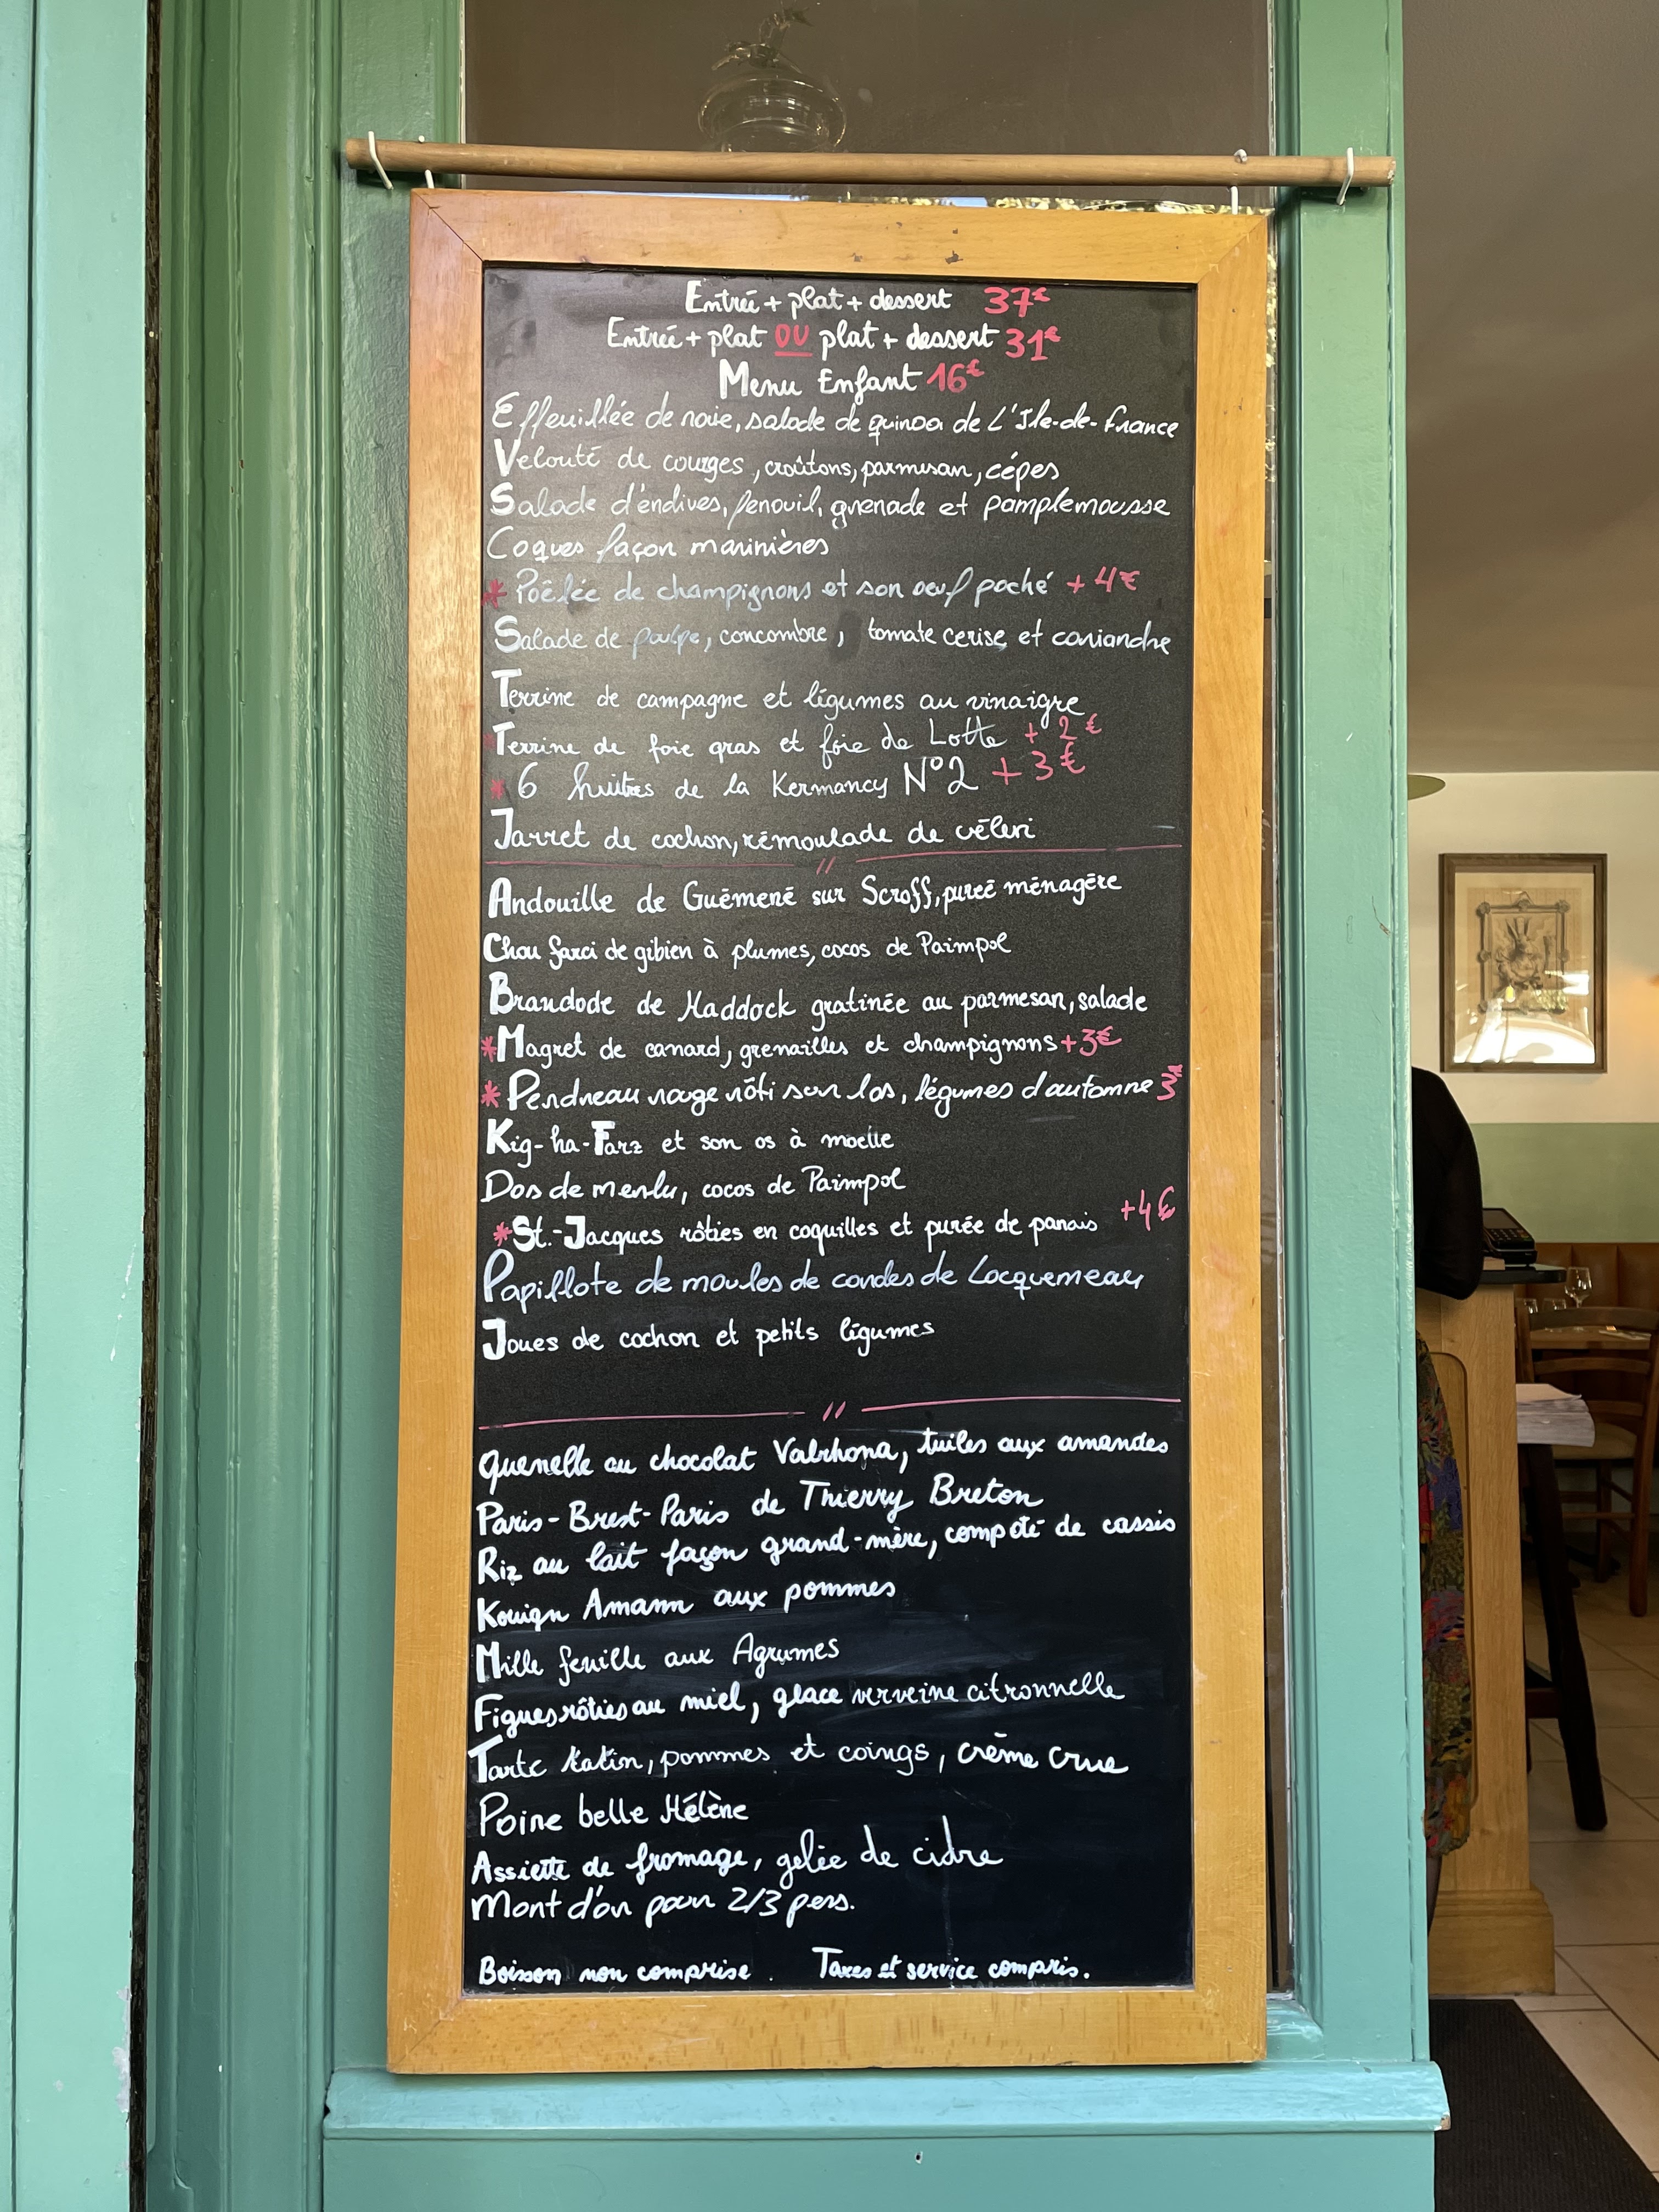 Entrée + plat + dessert 37€
Entrée + plat OU plat + dessert 31€
Menu Enfant 16€
Effeuillée de raie, salade de quinoa de L'Ile-de-france
Velouté de courges, croûtons, parmesan, cépes
Salade d'endives, fenouil, grenade et pamplemousse
Coques façon marinières
* Poêlée de champignons et son oeuf poché + 4€
Salade de poulpe, concombre, tomate cerise et coriandre
Terrine de campagne et légumes au vinaigre
* Terrine de foie gras et foie de Lotte + 2€
* 6 huîtres de la Kermancy N°2 + 3€
Jarret de cochon, rémoulade de céleri
//
Andouille de Guémené sur Scroff, pureé ménagère
Chou farci de gibien à plumes, cocos de Paimpol
Brandode de Haddock gratinée au parmesan, salade
* Magret de canard, grenailles et champignons +3€
* Perdreau rouge rôti sur l'os, légumes d'automne 3€
Kig-ha-Farz et son os à moelle
Dos de merlu, cocos de Paimpol
* St.-Jacques rôties en coquilles et purée de panais +4€
Papillote de moules de cordes de Locquemeau
Joues de cochon et petits légumes
//
Quenelle au chocolat Valrhona, tuiles aux amandes
Paris-Brest-Paris de Thierry Breton
Riz au lait façon grand-mère, compoté de cassis
Kouign Amann aux pommes
Mille feuille aux Agrumes
Figues rôties au miel, glace verveine citronnelle
Tarte tatin, pommes et coings, crème crue
Poire belle Hélène
Assiette de fromage, gelée de cidre
Mont d'or pour 2/3 pers.
Boisson non comprise. Taxes et service compris.